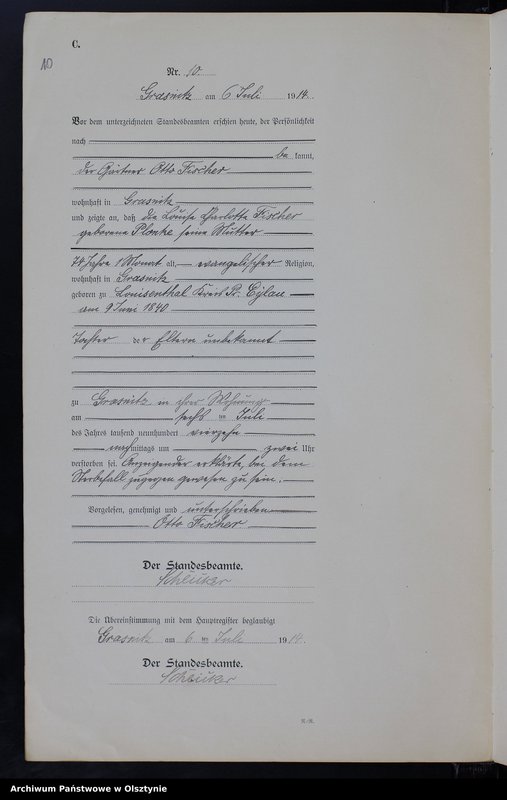 C.
10
Nr. 10.
Grasnitz am 6 Juli 1914.
Vor dem unterzeichneten Standesbeamten erschien heute, der Persönlichkeit
nach
be kannt,
der Gärtner Otto Fischer
wohnhaft in Grasnitz
und zeigte an, daß die Louise Charlotte Fischer
geborene Plonke seine Mutter
74 Jahre 1 Monat alt, evangelischer Religion,
wohnhaft in Grasnitz
geboren zu Louisenthal Kreis Pr. Eylau
am 9 Juni 1840
Tochter der Eltern unbekannt
zu Grasnitz in ihrer Wohnung
am sechs ten Juli
des Jahres tausend neunhundert vierzehn
nachmittags um zwei Uhr
verstorben sei. Anzeigender erklärte, bei dem
Sterbefall zugegen gewesen zu sein.
Vorgelesen, genehmigt und unterschrieben
Otto Fischer
Der Standesbeamte.
Die Übereinstimmung mit dem Hauptregister beglaubigt
Grasnitz am 6 ten Juli 1914.
Der Standesbeamte.
Archiwum Państwowe w Olsztynie